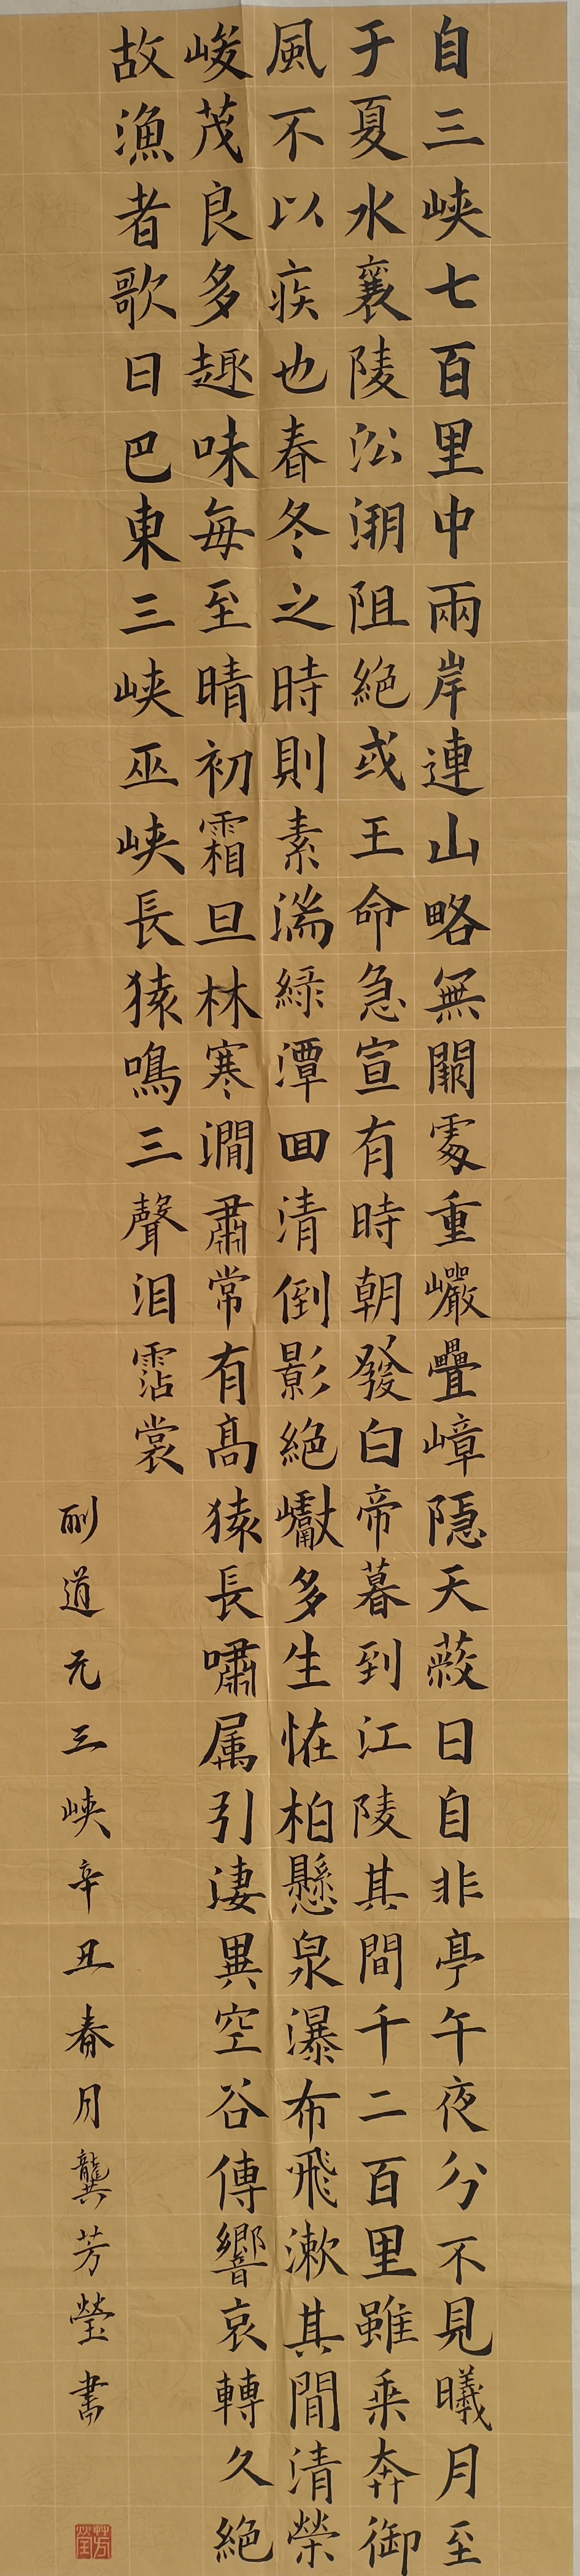 自三峽七百里中兩岸連山略無闕處重巖疊嶂隱天蔽日自非亭午夜分不見曦月至
于夏水襄陵沿溯阻絕或王命急宣有時朝發白帝暮到江陵其間千二百里雖乘奔御
風不以疾也春冬之時則素湍綠潭回清倒影絕巘多生恠柏懸泉瀑布飛漱其間清榮
峻茂良多趣味每至晴初霜旦林寒澗肅常有高猿長嘯属引淒異空谷傳響哀轉久絕
故漁者歌曰巴東三峽巫峽長猿鳴三聲泪霑裳
郦道元三峽辛丑春月龔芳瑩書
芳瑩